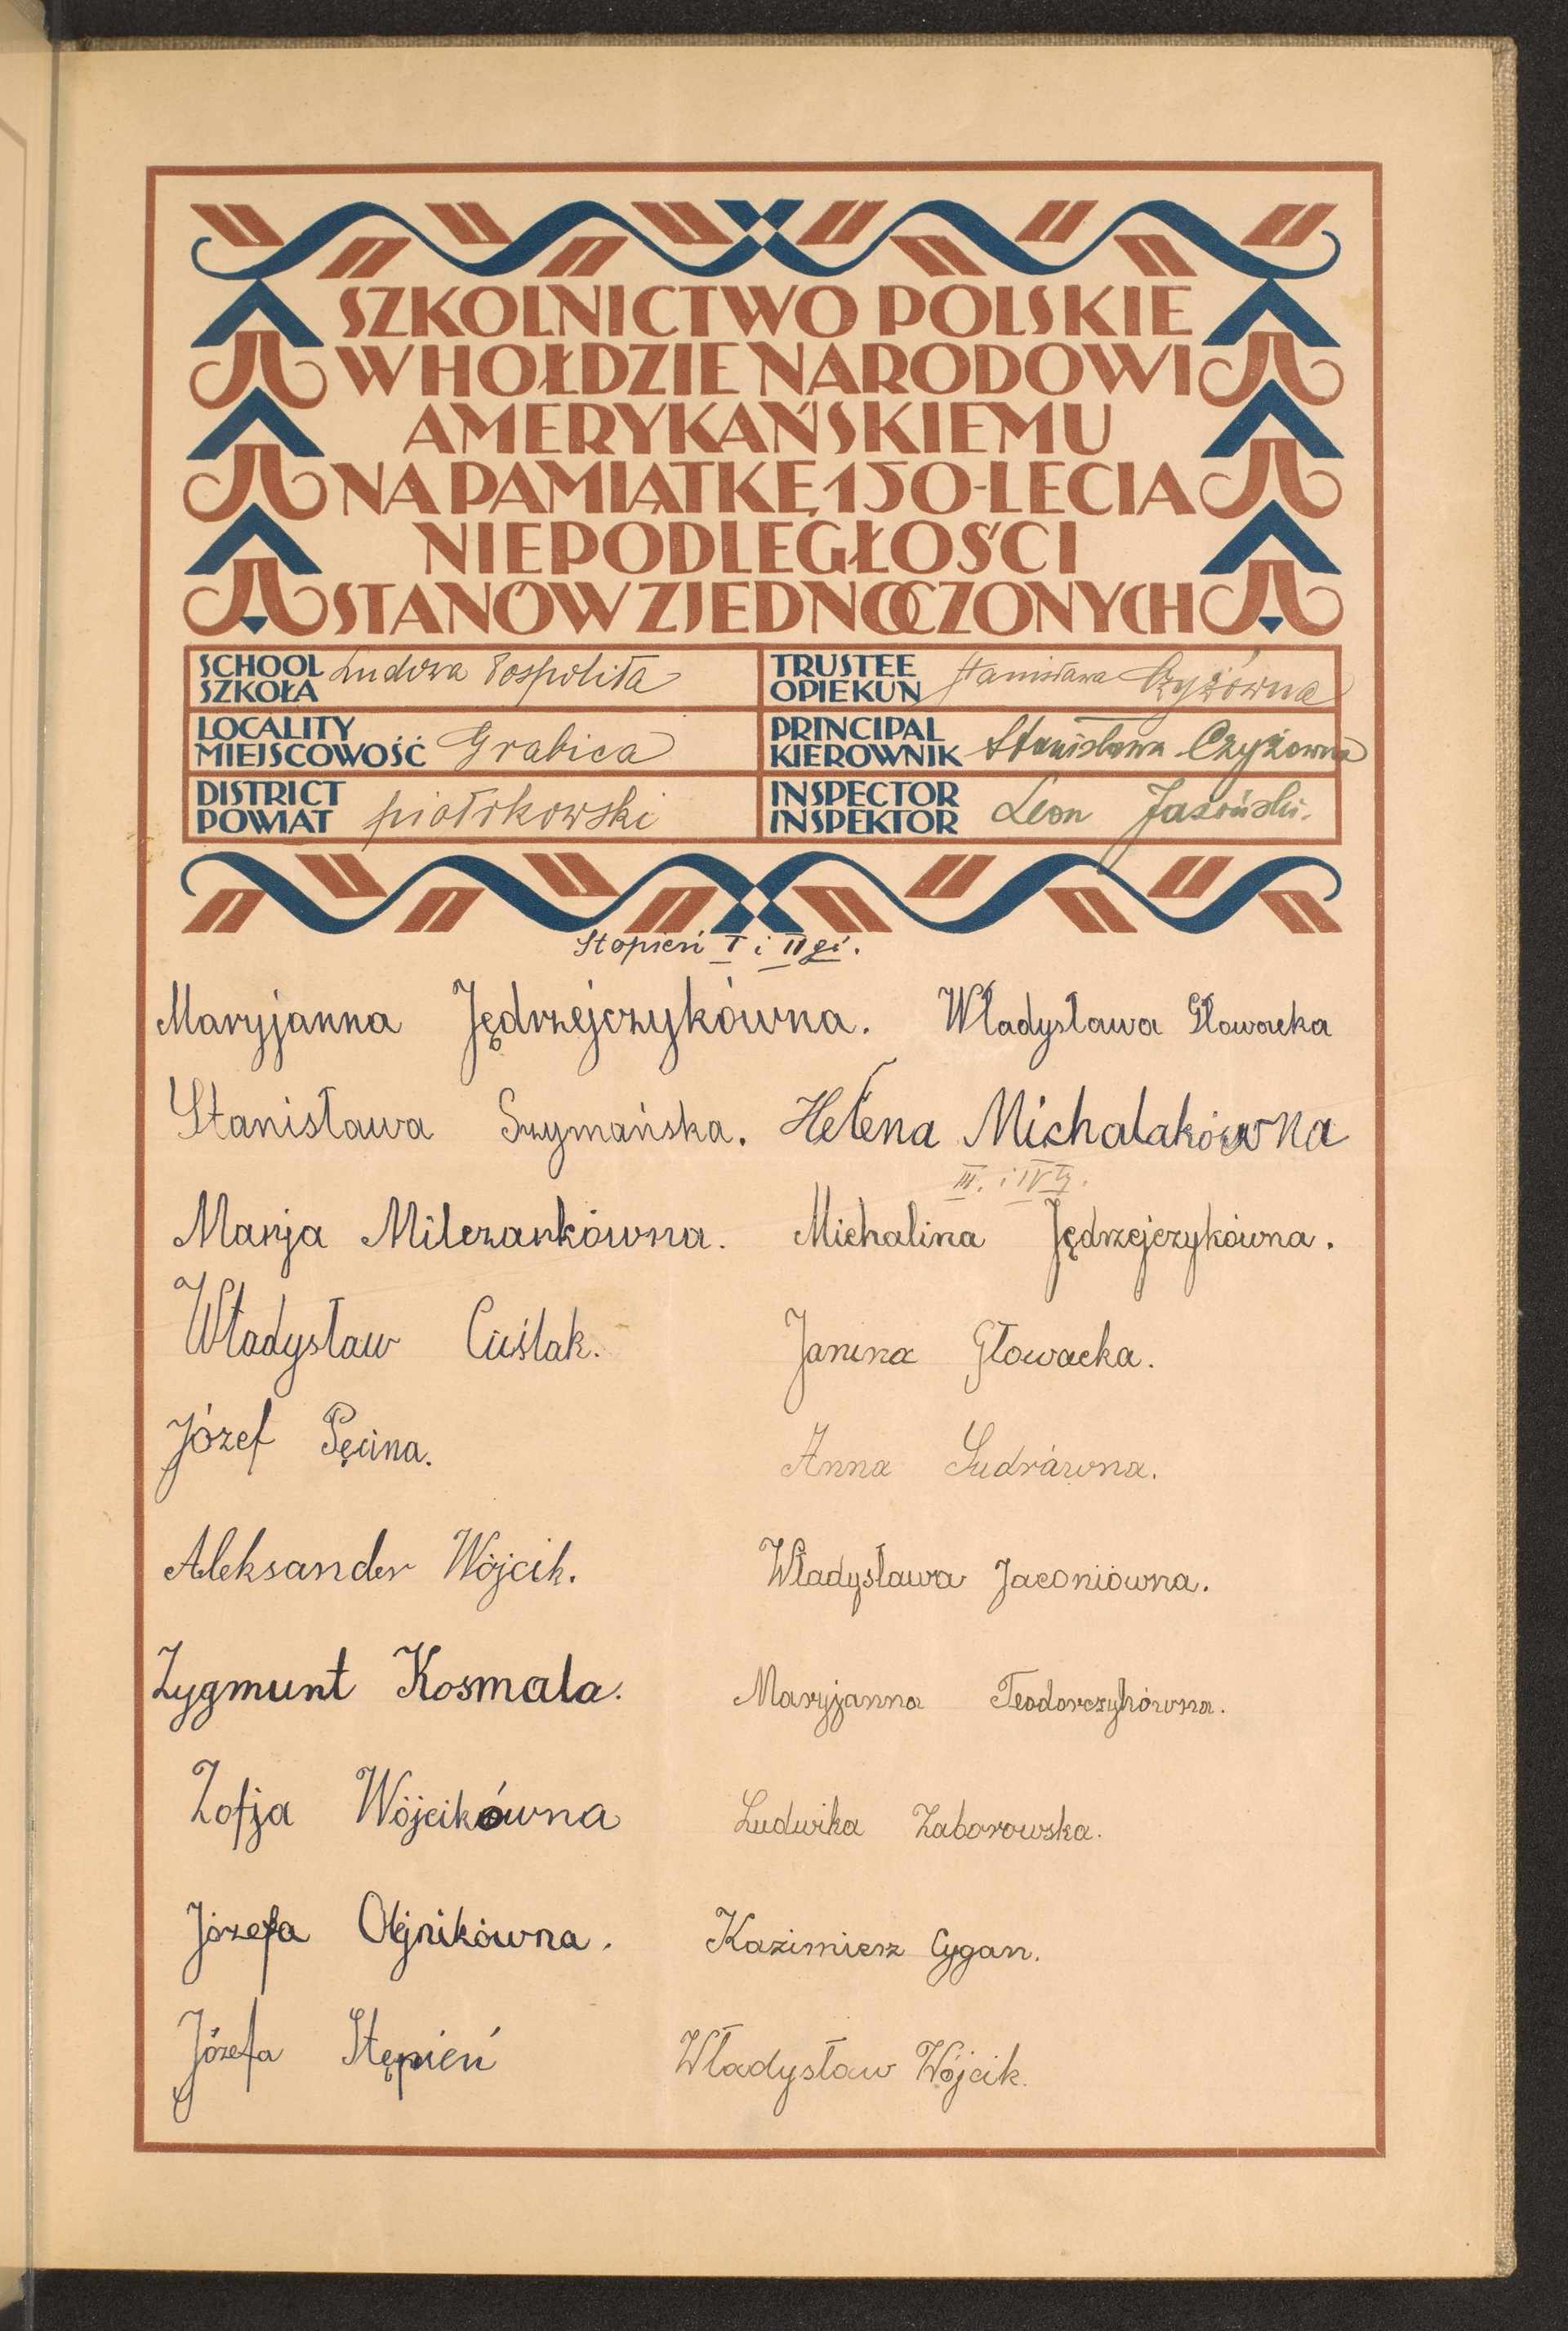 SZKOLNICTWO POLSKIE
W HOŁDZIE NARODOWI
AMERYKAŃSKIEMU
NA PAMIĄTKĘ 150-LECIA
NIEPODLEGŁOŚCI
STANÓW ZJEDNOCZONYCH
SCHOOL
SZKOŁA Ludowa Pospolita
TRUSTEE
OPIEKUN Stanisława Czyżówna
LOCALITY
MIEJSCOWOŚĆ Grabica
PRINCIPAL
KIEROWNIK Stanisława Czyżowna
DISTRICT
POWIAT piotrkowski
INSPECTOR
INSPEKTOR Leon
Stopień I i II gi.
Maryjanna Jędrzejczykówna. Władysława Głowacka
Stanisława Szymańska. Helena Michalakówna
III. i IV ty.
Marja Milczarkówna. Michalina Jędrzejczykówna.
Władysław Cieślak. Janina Głowacka.
Józef Pęcina. Anna
Aleksander Wójcik. Władysława Jaconiówna.
Zygmunt Kosmala. Maryjanna Teodorczykówna.
Zofja Wójcikówna Ludwika Zaborowska.
Józefa Olejnikówna. Kazimierz Cygan.
Józefa Stępień Władysław Wójcik.